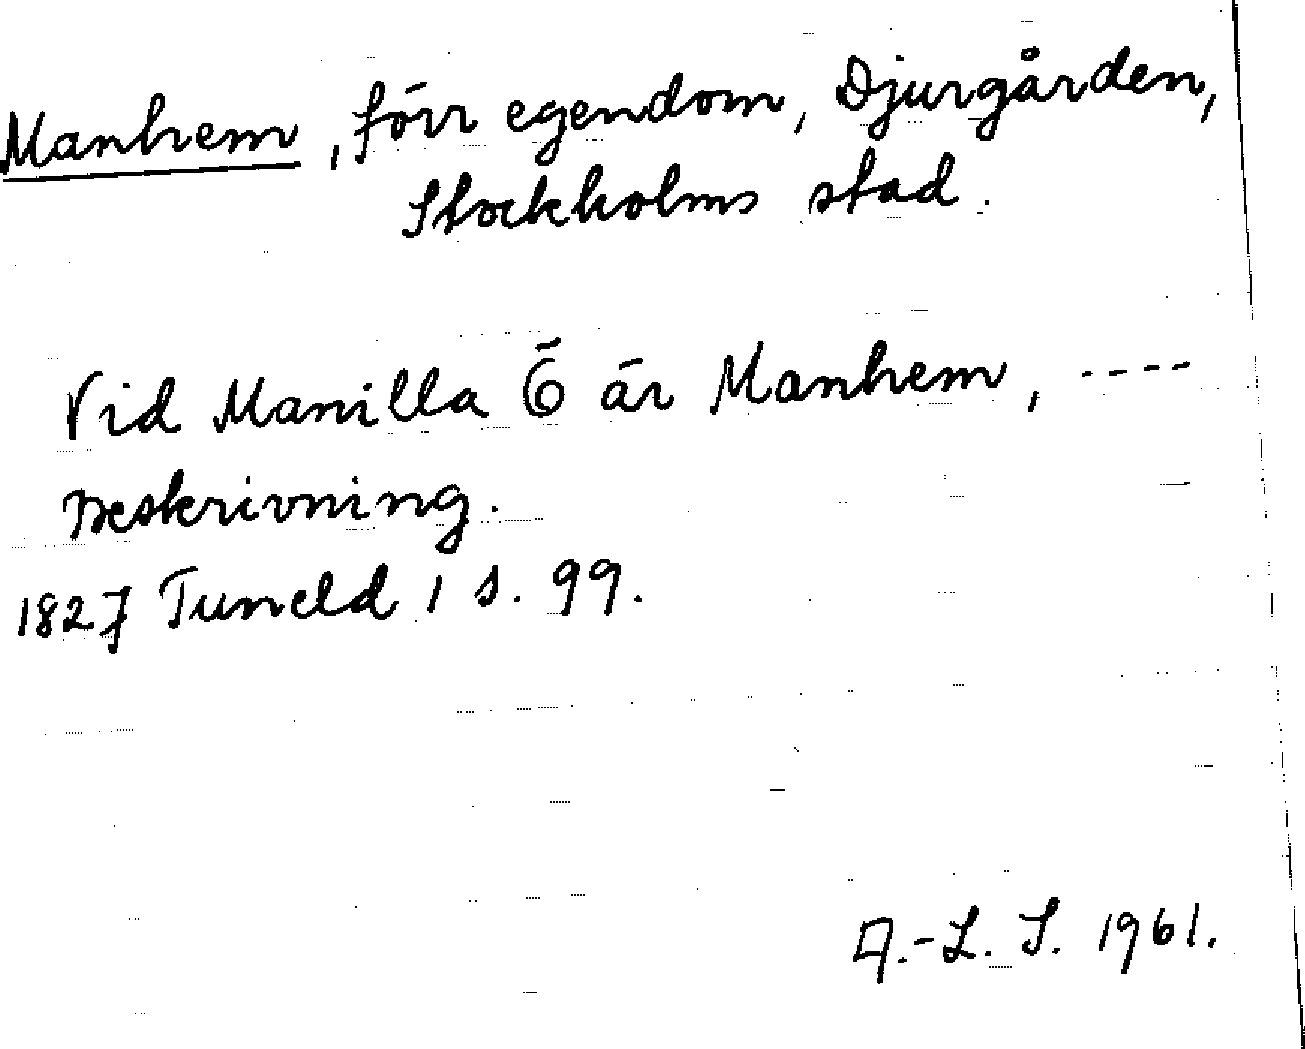 Manhem, förr egendom, Djurgården,
Stockholms stad.
Vid Manilla Ö är Manhem, ----
Beskrivning.
1827 Tuneld 1 s. 99.
A.-L. S. 1961.